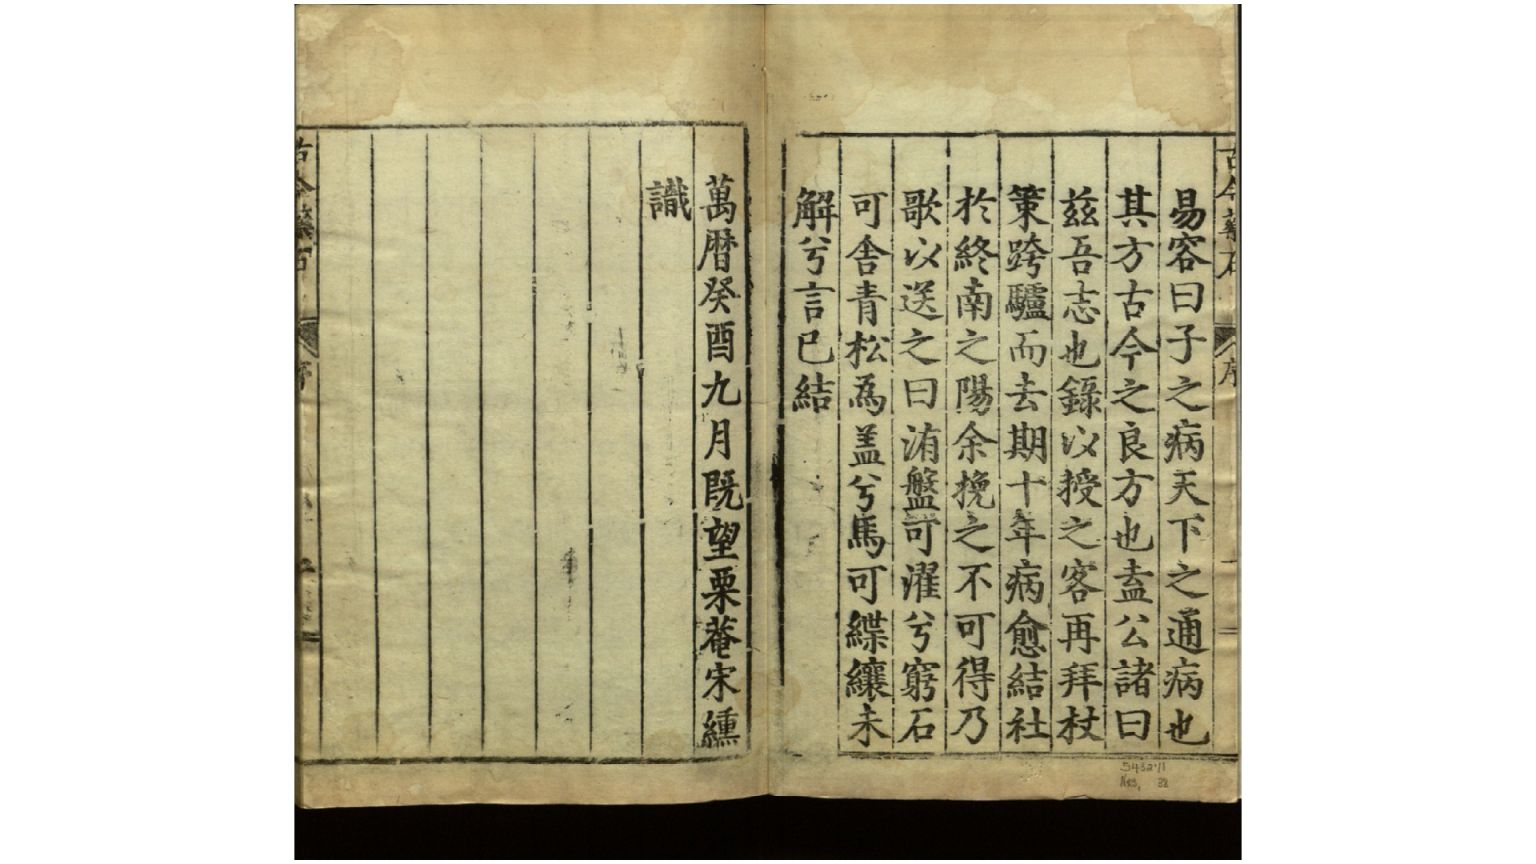 古今藥石
序
易容曰子之病天下之通病也
其方古今之良方也盍公諸曰
兹吾志也錄以授之客再拜杖
策跨驢而去期十年病愈結社
於終南之陽余挽之不可得乃
歌以送之曰洧盤可濯兮窮石
可舍青松爲盖兮馬可緤纕未
解兮言已結
萬暦癸酉九月既望栗菴宋纁
識
古今藥石
序
54327/1